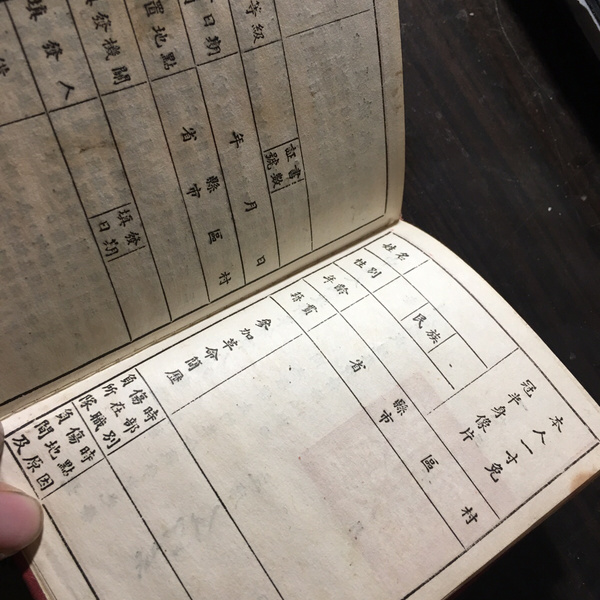 等級
証書號數
日期
年 月 日
置地點
省 縣市 區 村
填發機關
填發人
填發日期
姓名
性別
民族
年齡
籍貫
省 縣市 區 村
本人一寸免冠半身像片
參加革命簡歷
負傷時所在部隊職別
負傷時間地點及原因